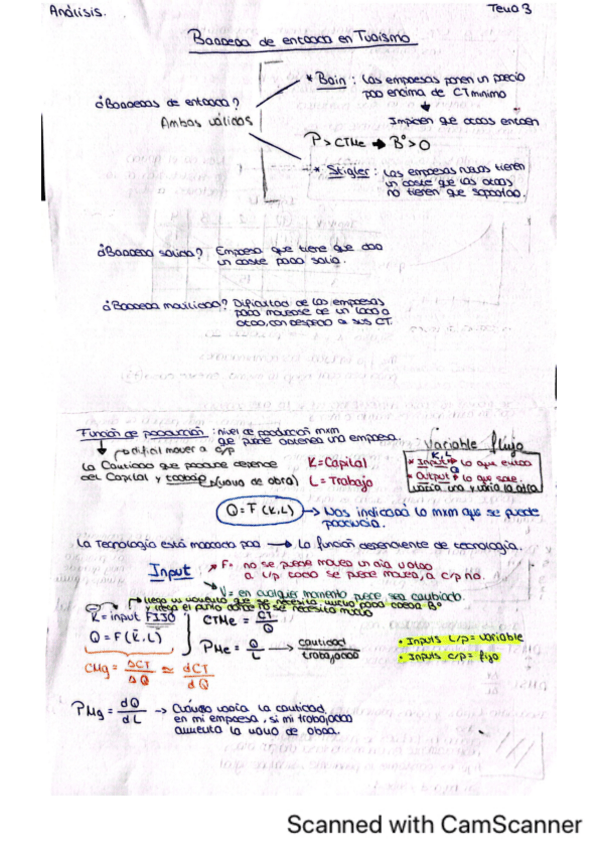 Análisis.
Tema 3
Barrera de entrada en Turismo
* Bain : Las empresas ponen un precio
por encima de CTmínimo
¿Barreras de entrada?
Ambas válidas
Impiden que otras entren
P > CTMe → Bº > 0
* Stigler : Las empresas nuevas tienen
un coste que las otras
no tienen que soportarlo.
¿Barrera salida? Empresa que tiene que dar
un coste para salir.
¿Barrera movilidad? Dificultad de las empresas
para moverse de un lado a
otro, con respecto a sus CT.
Función de producción : nivel de producción mxm
que puede obtener una empresa.
Variable flujo
difícil mover a c/p
K, L
La Cantidad que produce depende
del Capital y trabajo (mano de obra)
K = Capital
L = Trabajo
* Input → lo que entra
Q
* Output → lo que sale.
varía una y varía la otra
Q = F (K, L) → Nos indicará lo mxm que se puede
producir.
La Tecnología está marcada por → La función dependiente de tecnología.
Input :
F = no se puede mover un día u otro
a l/p todo se puede mover, a c/p no.
V = en cualquier momento puede ser cambiado.
llega un momento que se necesita mucho para Bº
y llega el punto donde no se necesita mucho
K = input FIJO
Q = F (K, L)
CTMe = CT / Q
PMe = Q / L → cantidad / trabajador
• Inputs L/p = variable
• Inputs c/p = fijo
CMg = ΔCT / ΔQ ≃ dCT / dQ
PMg = dQ / dL → Cuánto varía la cantidad
en mi empresa, si mi trabajador
aumenta la mano de obra.
Scanned with CamScanner